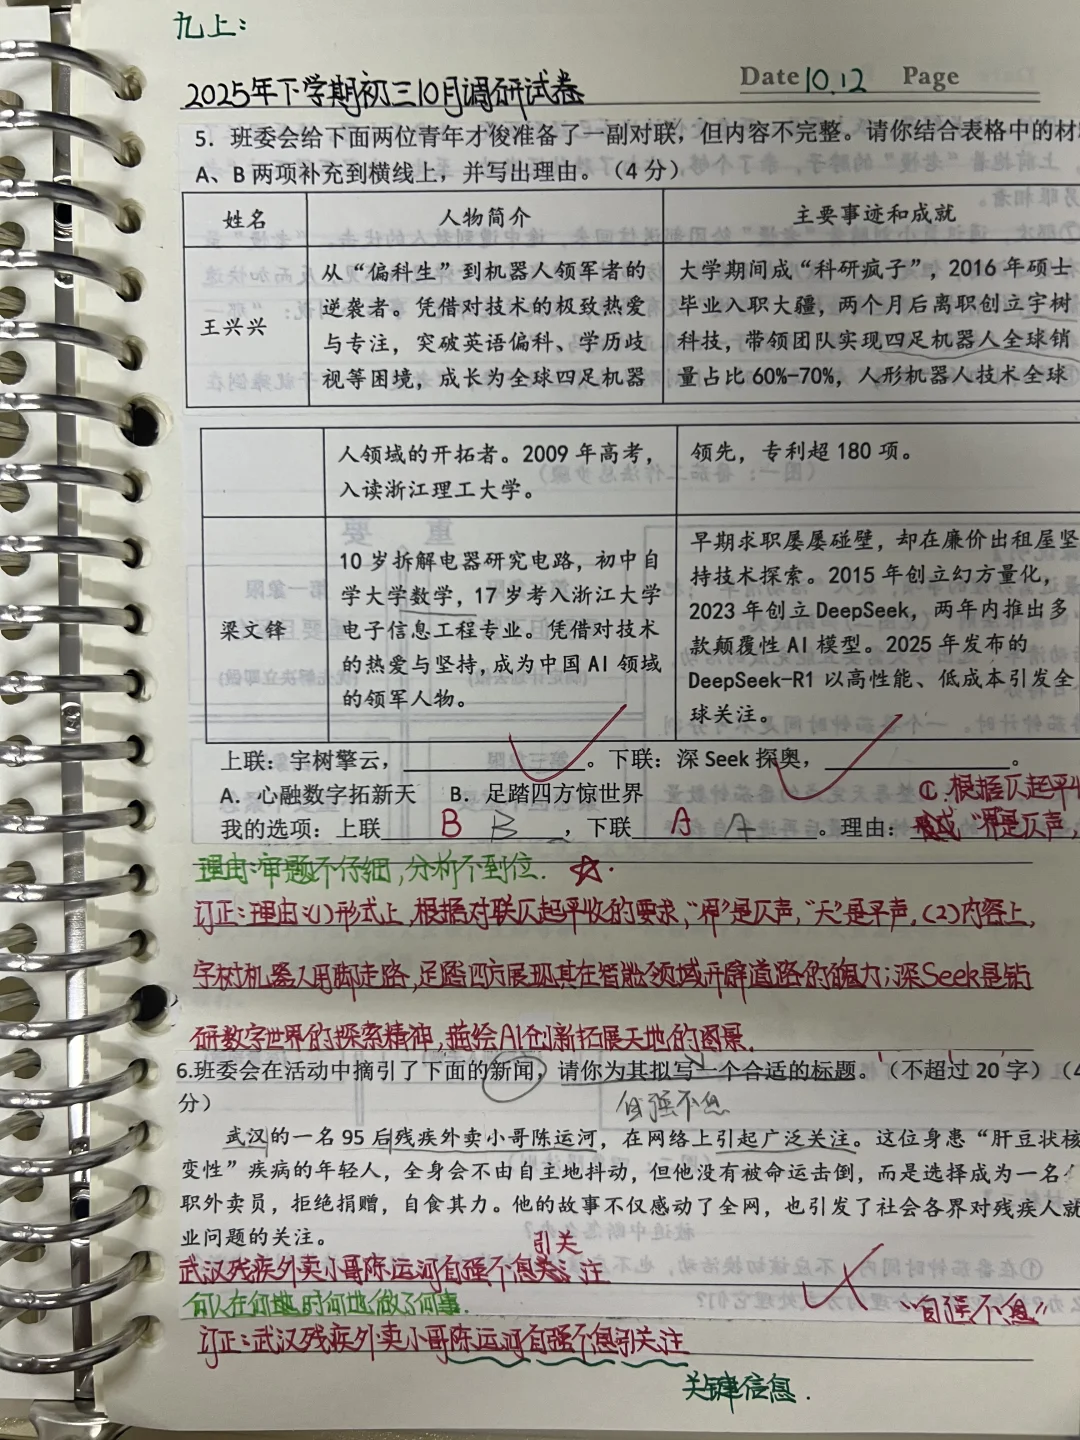 九上：
Date 10.12 Page
2025年下学期初三10月调研试卷
5．班委会给下面两位青年才俊准备了一副对联，但内容不完整。请你结合表格中的材
A、B两项补充到横线上，并写出理由。（4分）
姓名 人物简介 主要事迹和成就
王兴兴
从“偏科生”到机器人领军者的
逆袭者。凭借对技术的极致热爱
与专注，突破英语偏科、学历歧
视等困境，成长为全球四足机器
大学期间成“科研疯子”，2016年硕士
毕业入职大疆，两个月后离职创立宇树
科技，带领团队实现四足机器人全球销
量占比60%-70%，人形机器人技术全球
人领域的开拓者。2009年高考，
入读浙江理工大学。
领先，专利超180项。
梁文锋
10岁拆解电器研究电路，初中自
学大学数学，17岁考入浙江大学
电子信息工程专业。凭借对技术
的热爱与坚持，成为中国AI领域
的领军人物。
早期求职屡屡碰壁，却在廉价出租屋坚
持技术探索。2015年创立幻方量化，
2023年创立DeepSeek，两年内推出多
款颠覆性AI模型。2025年发布的
DeepSeek-R1以高性能、低成本引发全
球关注。
上联：宇树擎云，。下联：深Seek探奥，。
A．心融数字拓新天 B．足踏四方惊世界
①.根据仄起平收
我的选项：上联 B B ，下联 A A 。理由： “界”是仄声，
理由：审题不仔细，分析不到位．☆．
订正：理由：（1）形式上，根据对联仄起平收的要求，“界”是仄声，“天”是平声，（2）内容上，
宇树机器人用脚走路，足踏四方展现其在智能领域开辟道路的魄力；深Seek是钻
研数字世界的探索精神，描绘AI创新拓展天地的图景．
6.班委会在活动中摘引了下面的新闻，请你为其拟写一个合适的标题。（不超过20字）（4
分）
自强不息
武汉的一名95后残疾外卖小哥陈运河，在网络上引起广泛关注。这位身患“肝豆状核
变性”疾病的年轻人，全身会不由自主地抖动，但他没有被命运击倒，而是选择成为一名
职外卖员，拒绝捐赠，自食其力。他的故事不仅感动了全网，也引发了社会各界对残疾人就
业问题的关注。
引关
武汉残疾外卖小哥陈运河自强不息 注
何人在何地时何地做了何事．
“自强不息”
订正：武汉残疾外卖小哥陈运河自强不息引关注
关键信息．